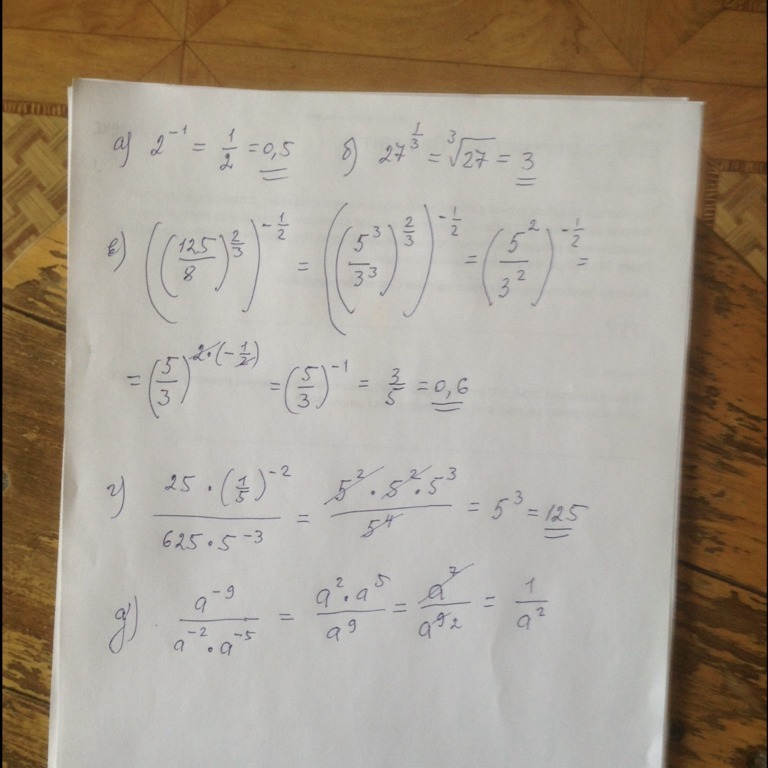 а) 2^{-1} = \frac{1}{2} = 0,5 б) 27^{\frac{1}{3}} = \sqrt[3]{27} = 3
в) \left(\left(\frac{125}{8}\right)^{\frac{2}{3}}\right)^{-\frac{1}{2}} = \left(\left(\frac{5^3}{3^3}\right)^{\frac{2}{3}}\right)^{-\frac{1}{2}} = \left(\frac{5^2}{3^2}\right)^{-\frac{1}{2}} =
= \left(\frac{5}{3}\right)^{2·(-\frac{1}{2})} = \left(\frac{5}{3}\right)^{-1} = \frac{3}{5} = 0,6
г) \frac{25·\left(\frac{1}{5}\right)^{-2}}{625·5^{-3}} = \frac{5^2·5^2·5^3}{5^4} = 5^3 = 125
д) \frac{a^{-9}}{a^{-2}·a^{-5}} = \frac{a^2·a^5}{a^9} = \frac{a^7}{a^{9 2}} = \frac{1}{a^2}